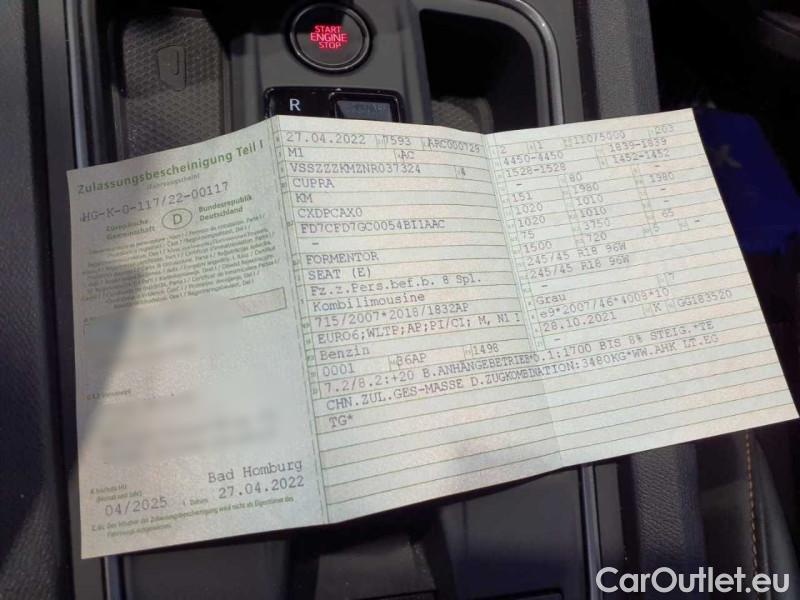 START
ENGINE
STOP
R
Zulassungsbescheinigung Teil I
(Fahrzeugschein)
HG-K-O-117/22-00117
Europäische
Gemeinschaft
D
Bundesrepublik
Deutschland
Bad Homburg
04/2025
27.04.2022
27.04.2022 7593 ARC000729
M1 AC
VSSZZZKMZNR037324 4
CUPRA
KM
CXDPCAX0
FD7CFD7GC0054BI1AAC
–
FORMENTOR
SEAT (E)
Fz.z.Pers.bef.b. 8 Spl.
Kombilimousine
715/2007*2018/1832AP
EURO6;WLTP;AP;PI/CI; M, N1 I
Benzin
0001 36AP 1498
7.2/8.2:+20 B.ANHÄNGEBETRIEB*O.1:1700 BIS 8% STEIG.*TE
CHN.ZUL.GES-MASSE D.ZUGKOMBINATION:3480KG*WW.AHK LT.EG
TG*
2 1 110/5000 203
4450-4450 1839-1839
1528-1528 1452-1452
– 80 –
151 1980 1980
1020 1010 –
1020 1010 –
75 3750 65
1500 720 5 –
245/45 R18 96W
245/45 R18 96W
–
Grau 7
e9*2007/46*4003*10
28.10.2021 K GG183520
CarOutlet.eu